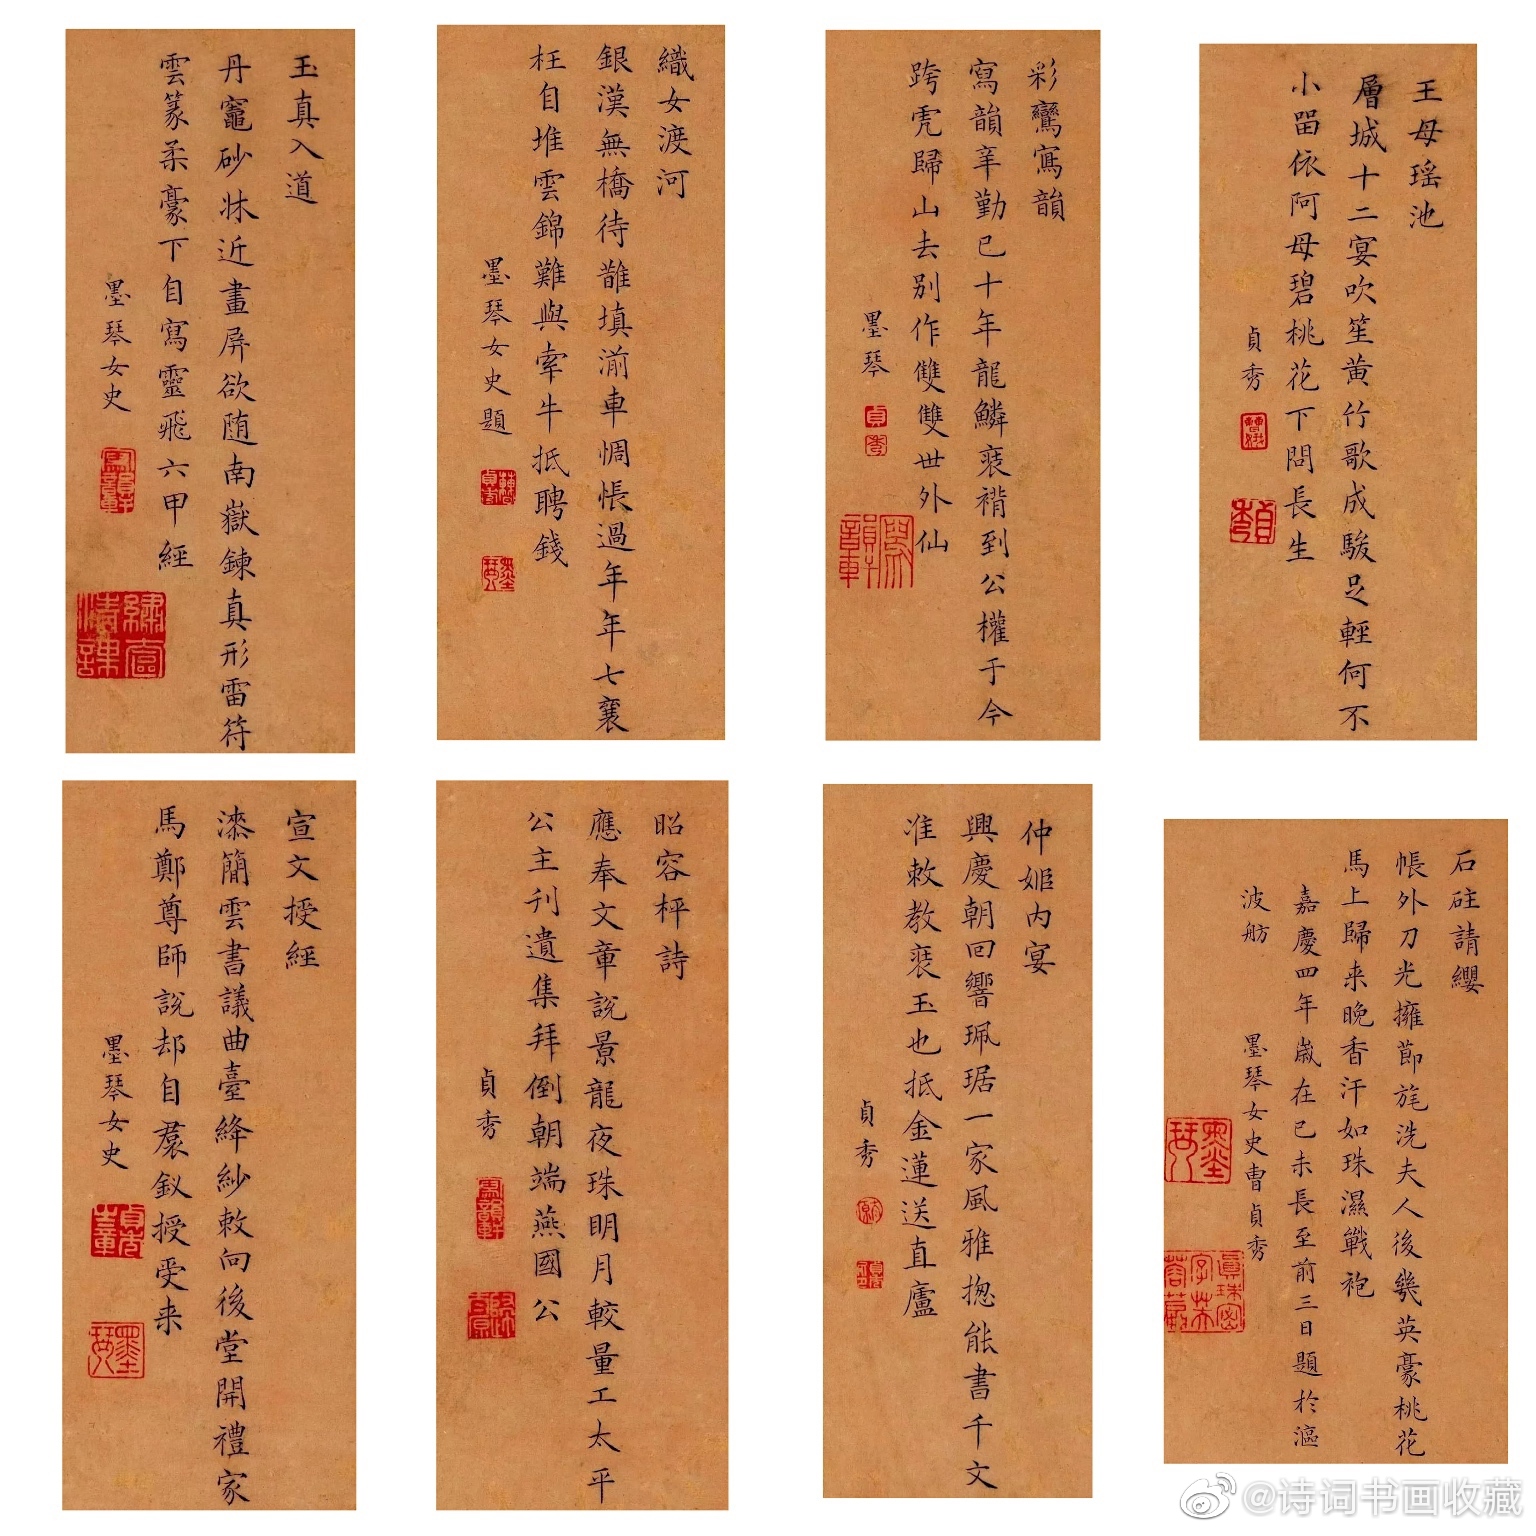 王母瑶池
層城十二宴吹笙黄竹歌成駿足輕何不
小留依阿母碧桃花下問長生
貞秀
彩鸞寫韻
寫韻辛勤已十年龍鱗裝褙到公權于今
跨虎歸山去別作雙雙世外仙
墨琴
貞
秀
織女渡河
銀漢無橋待鵲填湔車惆悵過年年七襄
枉自堆雲錦難與牽牛抵聘錢
墨琴女史題
玉真入道
丹竈砂牀近畫屏欲随南嶽鍊真形雷符
雲篆柔豪下自寫靈飛六甲經
墨琴女史
石砫請纓
帳外刀光擁節旄洗夫人後幾英豪桃花
馬上歸来晚香汗如珠濕戰袍
嘉慶四年歲在己未長至前三日題於漚
波舫
墨琴女史曹貞秀
墨琴
仲姬内宴
興慶朝回響珮琚一家風雅揔能書千文
准敕教裝玉也抵金蓮送直廬
貞秀
昭容枰詩
應奉文章說景龍夜珠明月較量工太平
公主刊遺集拜倒朝端燕國公
貞秀
宣文授經
漆簡雲書議曲臺絳紗敕向後堂開禮家
馬鄭尊師說却自裠釵授受来
墨琴女史
墨琴
@诗词书画收藏